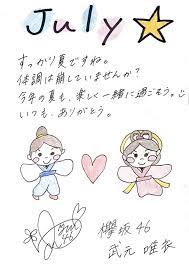 July
すっかり夏ですね。
体調は崩していませんか？
今年の夏も、楽しく一緒に過ごそう。
いつも、ありがとう。
46
欅坂46
武元 唯衣